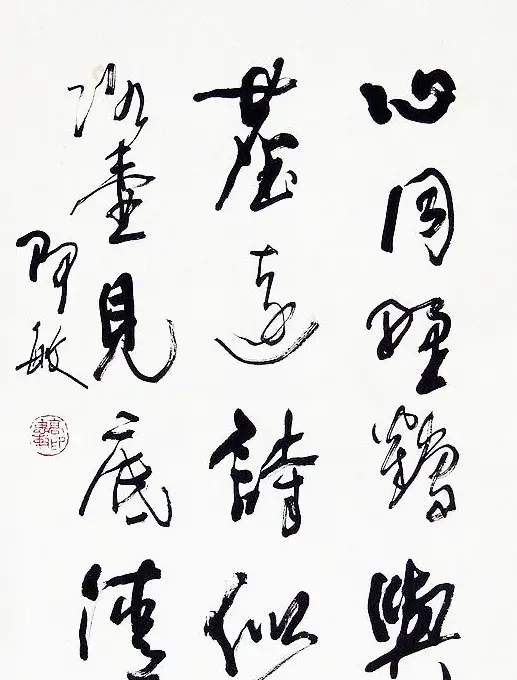 心同野鶴與
塵遠詩似
冰壺見底清
阿敏